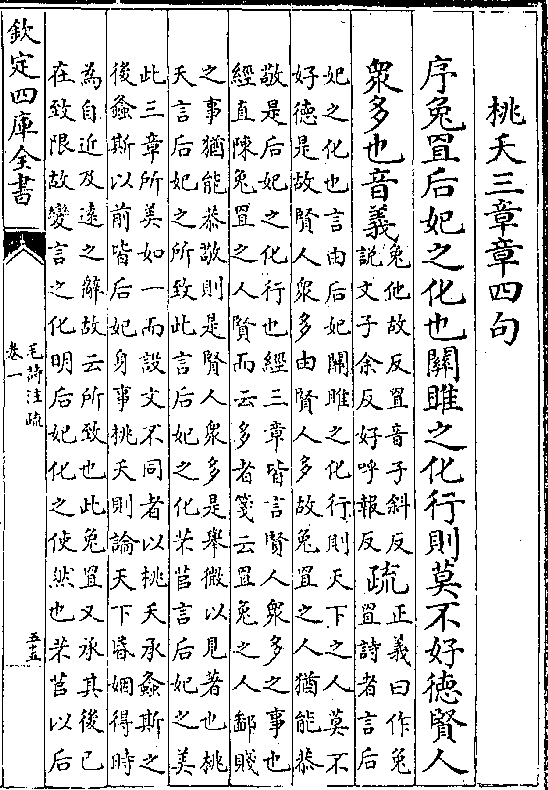 桃夭三章章四句
序兔罝后妃之化也關雎之化行則莫不好德賢人
衆多也音義兔他故反罝音子斜反
説文子余反好呼報反疏正義曰作兔
罝詩者言后
妃之化也言由后妃關雎之化行則天下之人莫不
好德是故賢人衆多由賢人多故兔罝之人猶能恭
敬是后妃之化行也經三章皆言賢人衆多之事也
經直陳兔罝之人賢而云多者箋云罝兔之人鄙賤
之事猶能恭敬則是賢人衆多是舉微以見著也桃
夭言后妃之所致此言后妃之化芣苢言后妃之美
此三章所美如一而設文不同者以桃夭承螽斯之
後螽斯以前皆后妃身事桃夭則論天下昏姻得時
為自近及遠之辭故云所致也此兔罝又承其後已
在致限故變言之化明后妃化之使然也芣苢以后
欽定四庫全書
毛詩注疏
卷一
五五